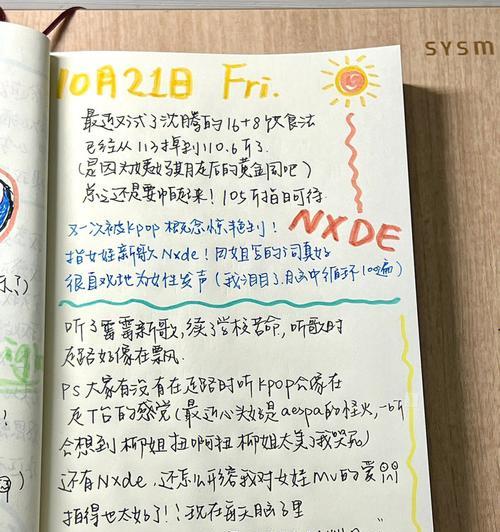 SYSM
10月21日 Fri.
最近又试了沈腾的16+8饮食法
已经从113掉到110.6斤了
(是因为姨妈期后的黄金周吧)
总之还是要冲起来！105斤指日可待
又一次被Kpop概念惊艳到！
NXDE
指女娃新歌Nxde！田姐写的词真好
很直观地为女性发声(我泪目了，脑中循环100遍)
听了雷雷新歌，续了学校革命，听歌时
走路好像在飘.
PS 大家有没有在走路时听kpop会像在
走T台的感觉(最近心头好是aespa的怪火，一听
会想到柳姐扭啊扭 柳姐太美了我哭死)
还有Nxde，还怎么形容我对女娃MV的爱
拍得也太好了!! 现在每天脑子里